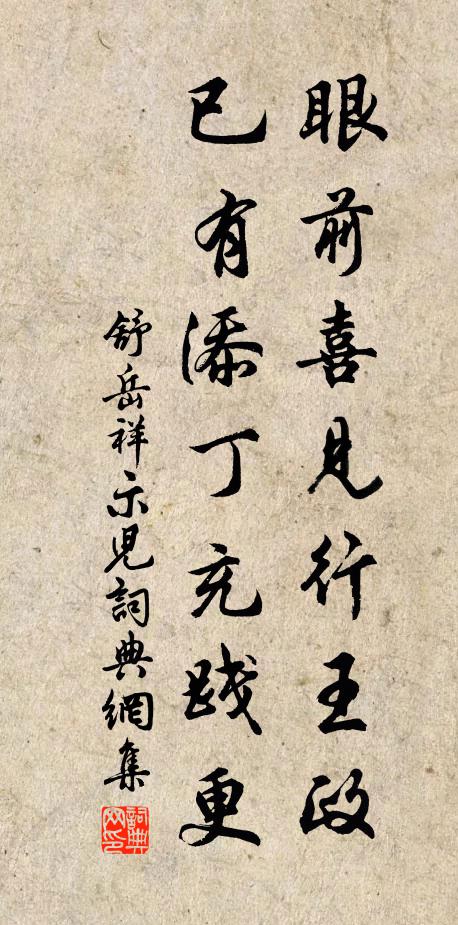 眼前喜見行王政
已有添丁充踐更
舒岳祥示兒詞典網集
詞典網印